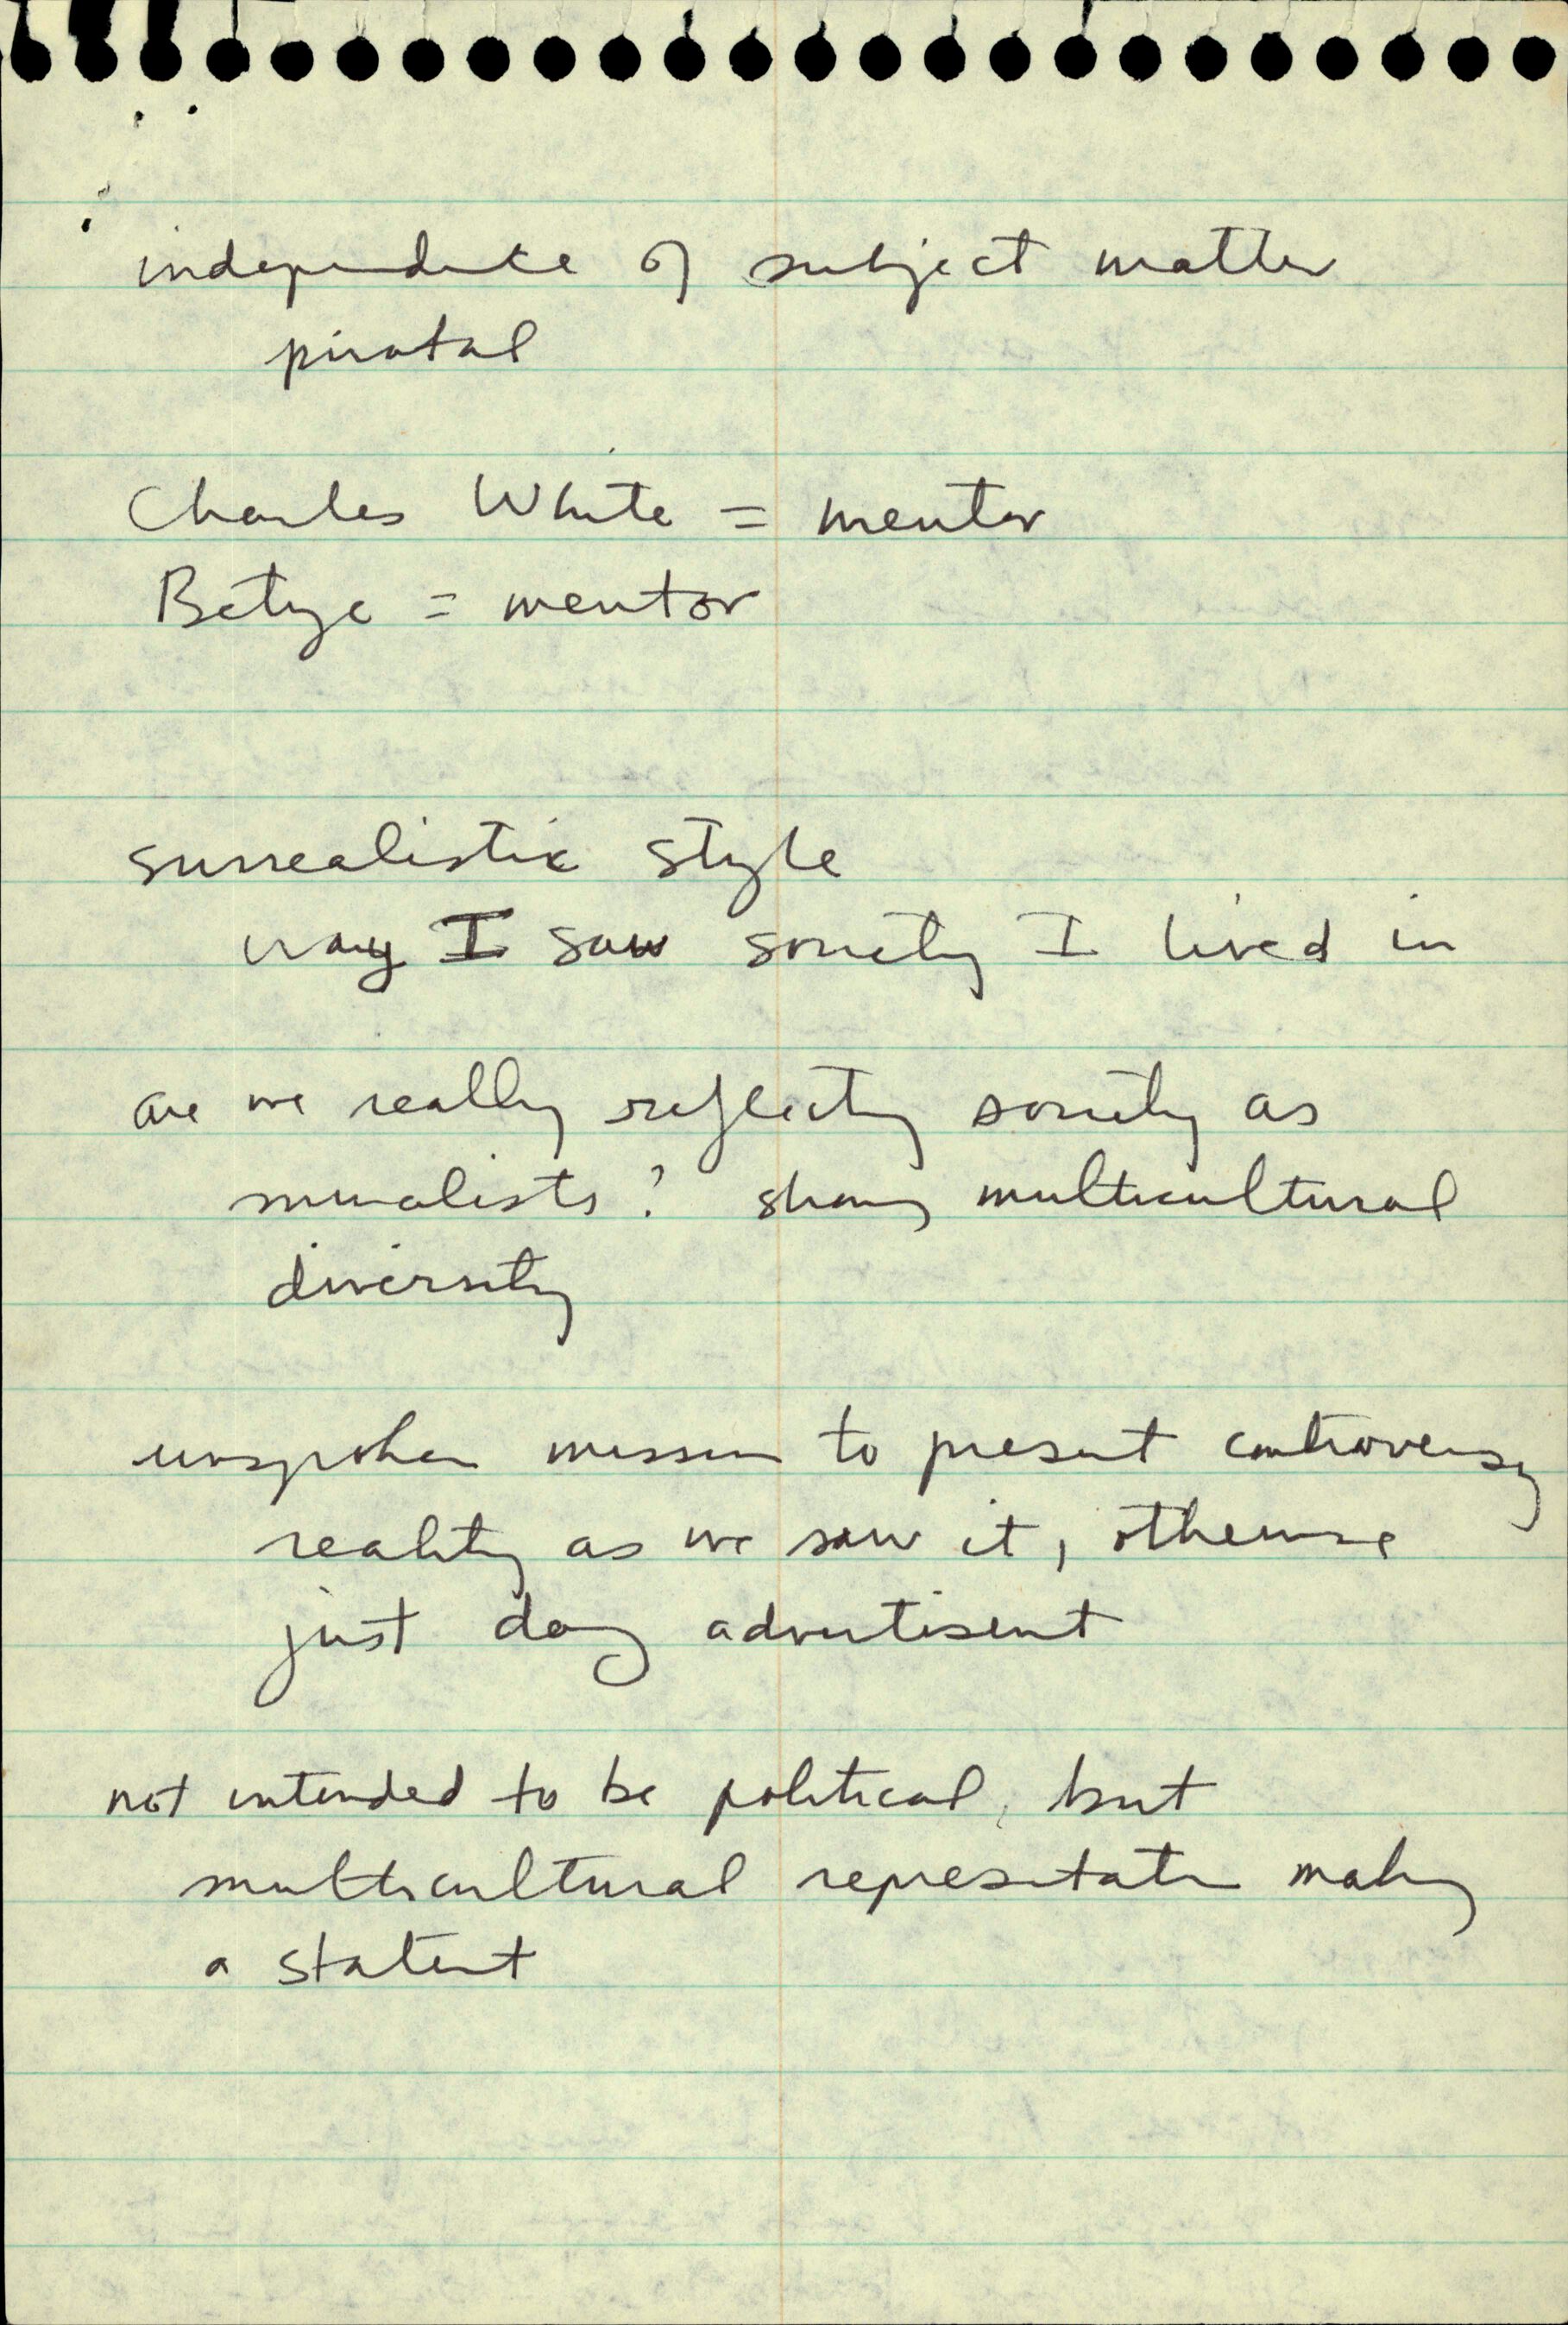 independence of subject matter
pivotal
Charles White = mentor
Betye = mentor
surrealistic style
way I saw society I lived in
are we really reflecting society as
muralists? showing multicultural
diversity
unspoken mission to present controversy
reality as we saw it, otherwise
just doing advertisent
not intended to be political, but
multicultural represetatn making
a statent